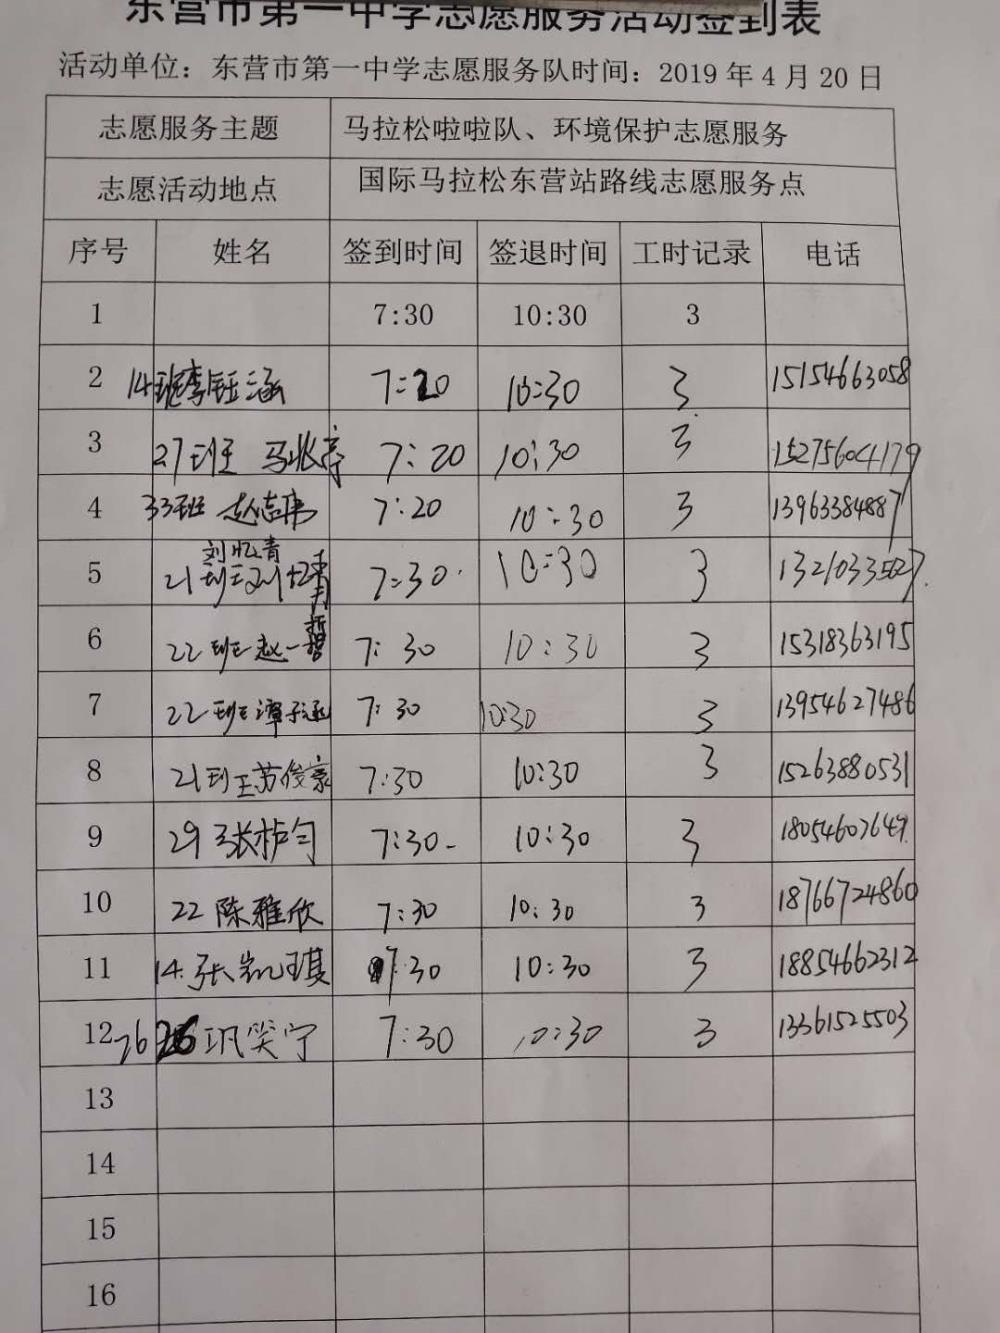 东营市第一中学志愿服务活动签到表
活动单位：东营市第一中学志愿服务队时间：2019 年 4 月 20 日
志愿服务主题 马拉松啦啦队、环境保护志愿服务
志愿活动地点 国际马拉松东营站路线志愿服务点
序号 姓名 签到时间 签退时间 工时记录 电话
1 7:30 10:30 3
2 14班李钰涵 7:20 10:30 3 15154663058
3 27班 马兆亭 7:20 10:30 3 15275604179
4 33班 赵志伟 7:20 10:30 3 13963384887
刘忆青
5 21班 7:30 10:30 3 13210335627
6 22班赵一哲 7:30 10:30 3 15318363195
7 22班谭子涵 7:30 10:30 3 13954627486
8 21班苏俊豪 7:30 10:30 3 15263880531
9 29张栌匀 7:30 10:30 3 18054607649
10 22陈雅欣 7:30 10:30 3 18766724860
11 14.张凯琪 7:30 10:30 3 18854662312
12 26 巩笑宁 7:30 10:30 3 13361525503
13
14
15
16